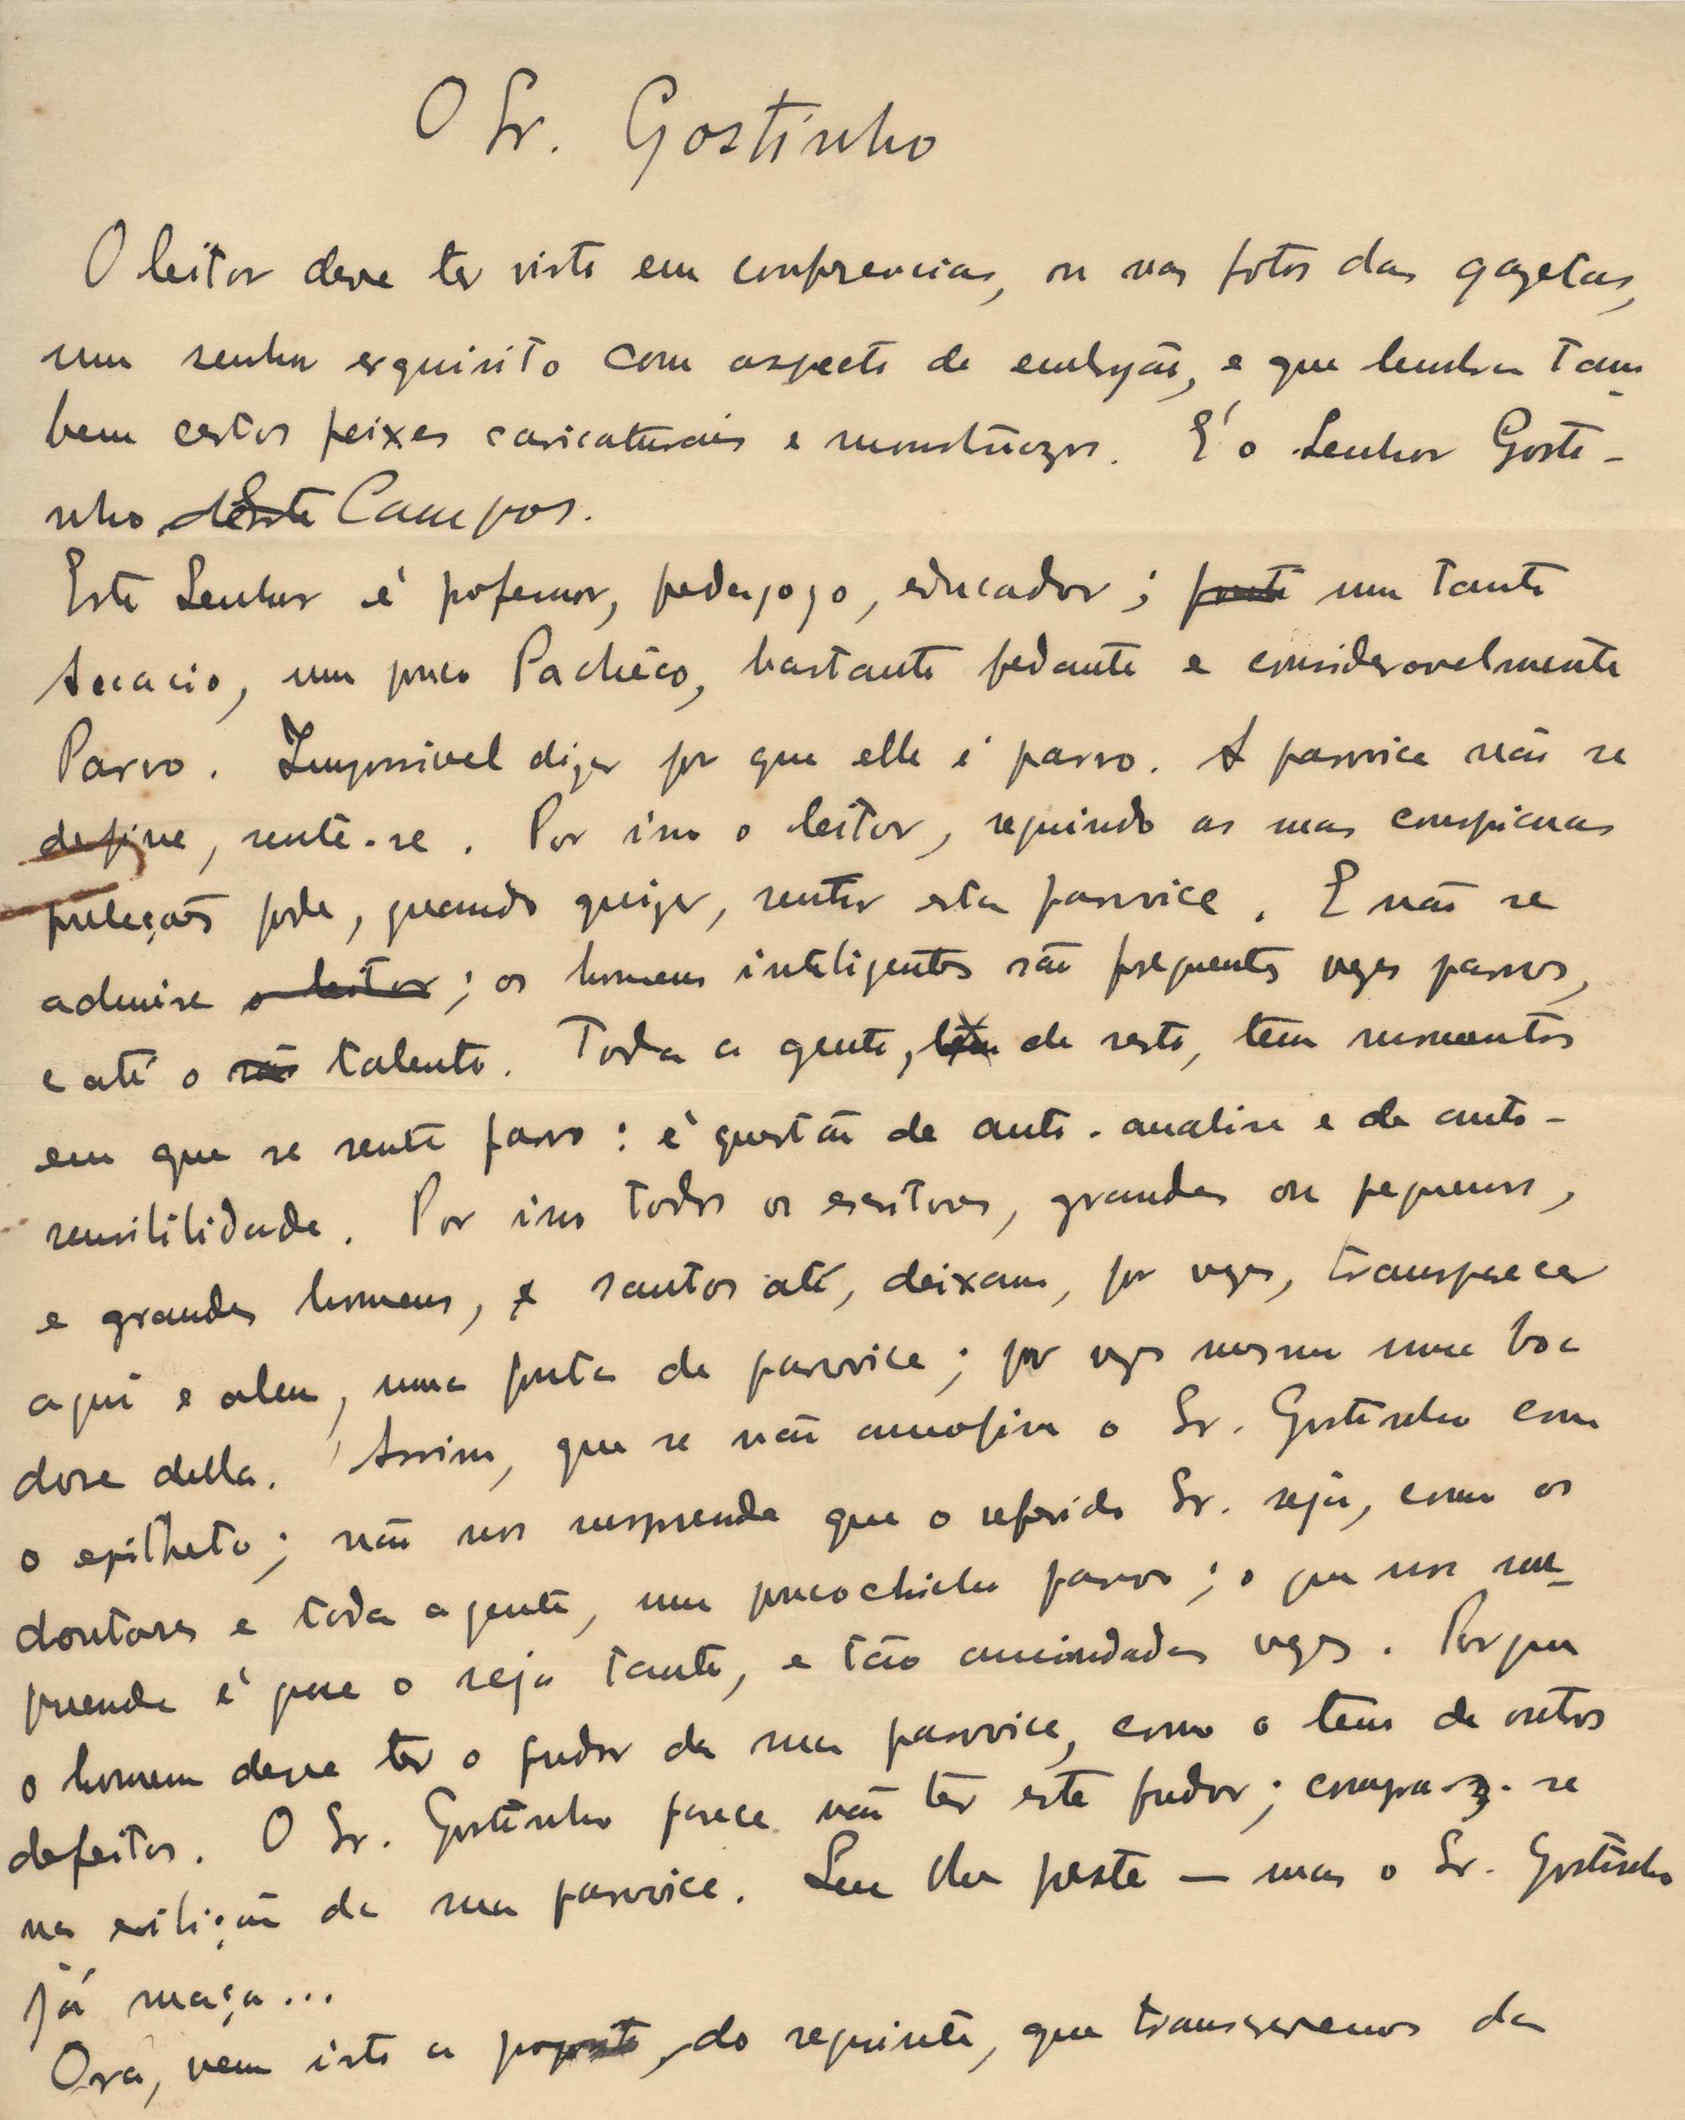 O Sr. Gostinho
O leitor deve ter visto em confrencias, ou nas fotos das gazetas,
um senhor esquisito com aspecto de embryão, e que lembra tam-
bem certos peixes caricaturais e monstruozos. É o Senhor Gosti-
nho deste Campos.
Este Senhor é professor, pedagogo, educador; um tanto
Accacio, um pouco Pachêco, bastante pedante e consideravelmente
Parvo. Impossivel dizer por que elle é parvo. A parvoice não se
define, sente-se. Por isso o leitor, seguindo as suas conspicuas
preleçoes pode, quando quizer, sentir esta parvoice. E não se
admire o leitor; os homens inteligentes são frequentes vezes parvos,
e até o são talento. Toda a gente, tem de resto, tem momentos
em que se sente parvo: é questão de auto-analise e de auto-
sensibilidade. Por isso todos os escritores, grandes ou pequenos,
e grandes homens, e santos até, deixam, por vezes, transparecer
aqui e alem, uma ponta de parvoice; por vezes mesmo uma boa
dose della. Assim, que se não amofine o Sr. Gostinho com
o epitheto; não nos surprende que o referido Sr. seja, como os
doutores e toda a gente, um poucochinho parvo; o que nos sur-
prende é que o seja tanto, e tão amiudadas vezes. Porque
o homem deve ter o pudor da sua parvoice, como o tem de outros
defeitos. O Sr. Gostinho parece não ter este pudor; compraz-se
na exibição da sua parvoice. Seu lhe preste — mas o Sr. Gostinho
já maça...
Ora, vem isto a proposito, do seguinte, que transcrevemos da